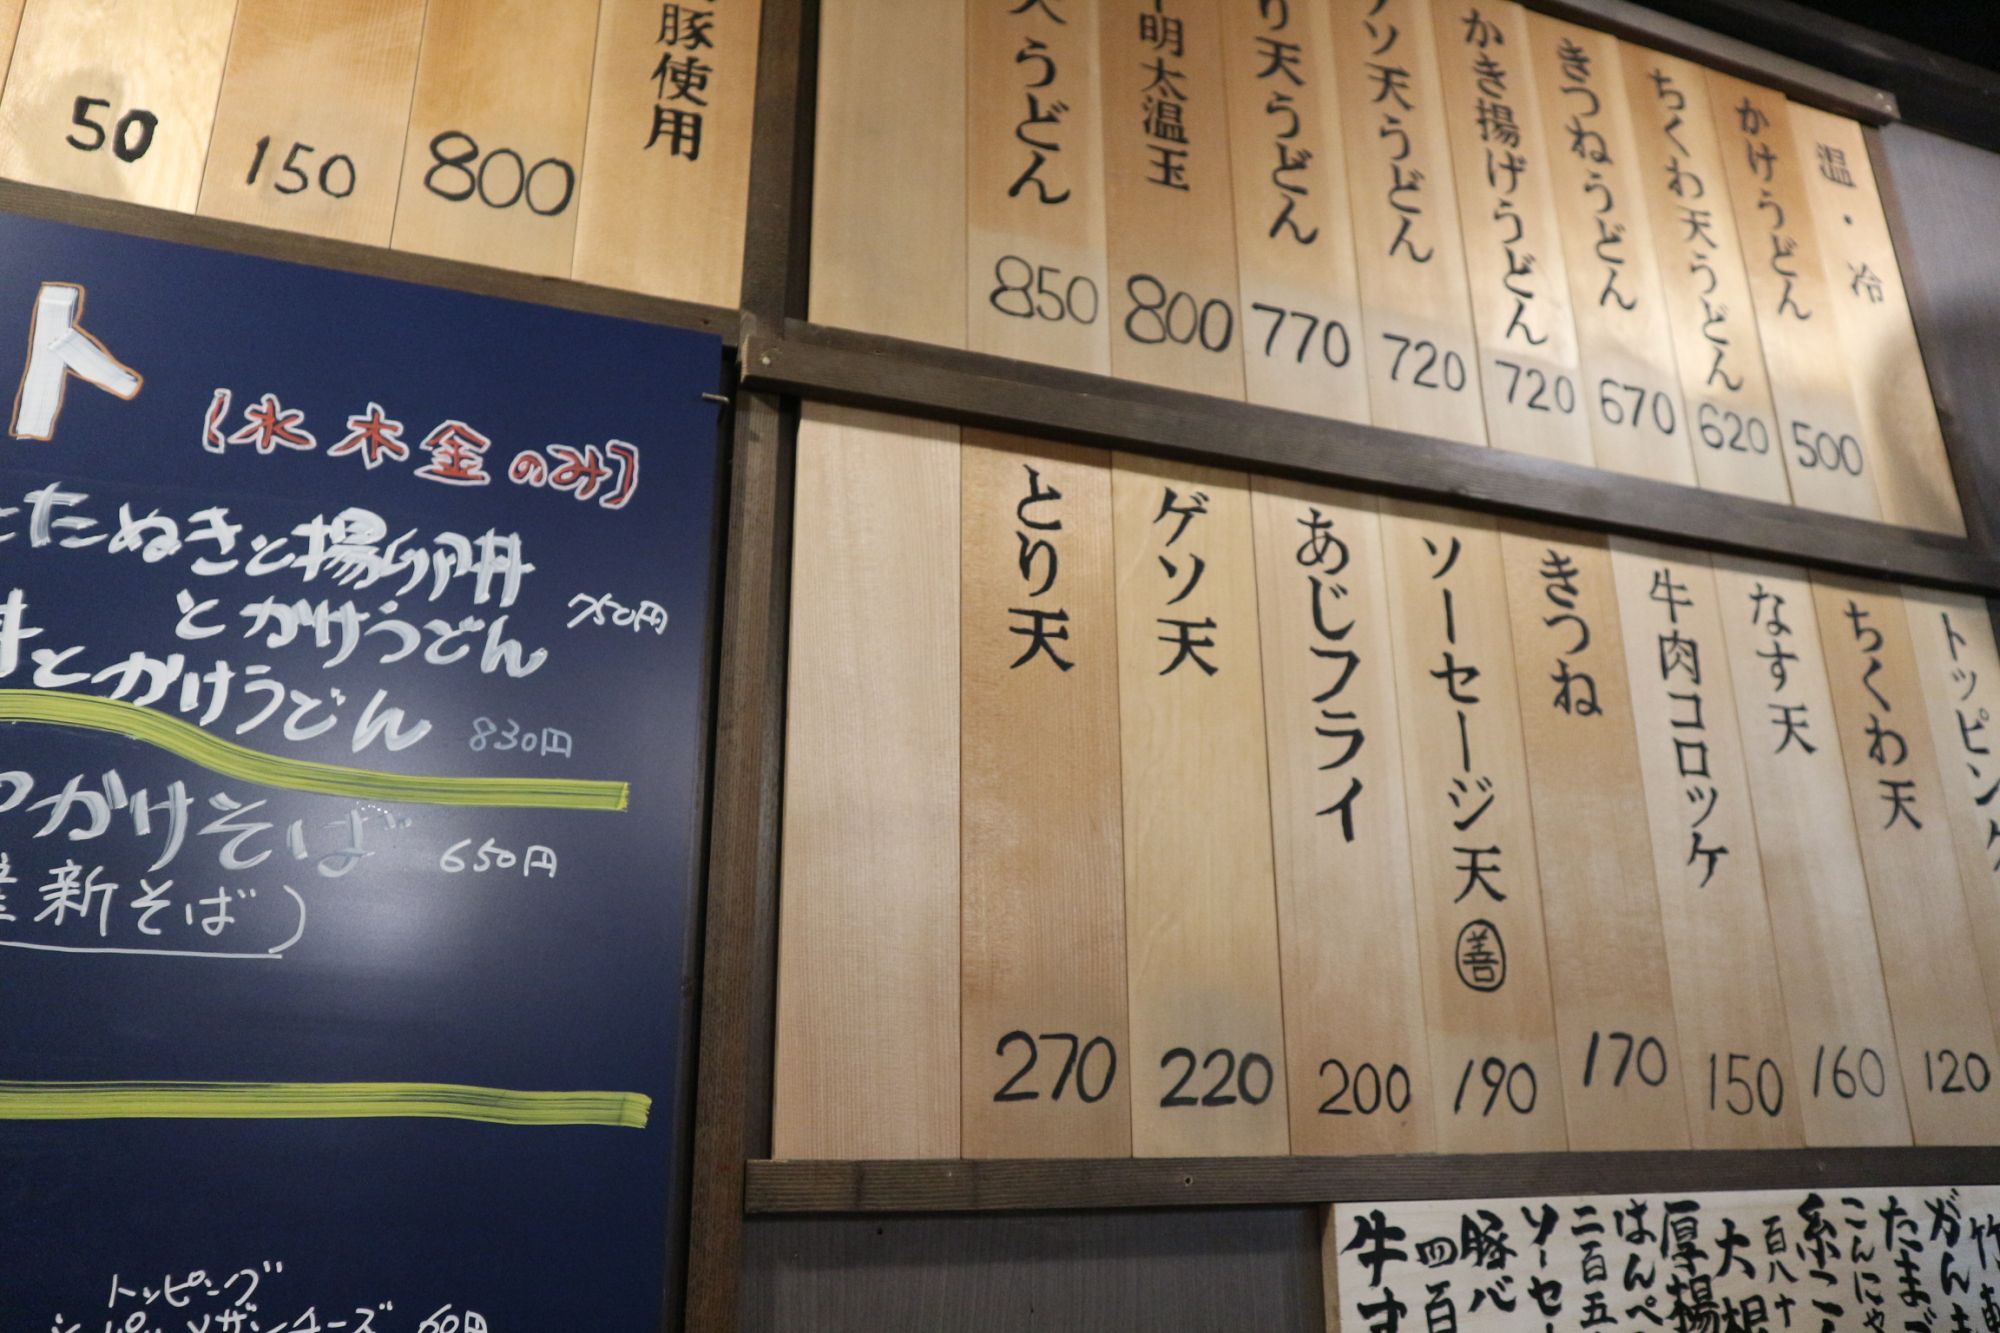 温・冷
かけうどん 500
ちくわ天うどん 620
きつねうどん 670
かき揚げうどん 720
ソ天うどん 720
り天うどん 770
明太温玉 800
うどん 850
トッピング
ちくわ天 120
なす天 160
牛肉コロッケ 150
きつね 170
ソーセージ天 善 190
あじフライ 200
ゲソ天 220
とり天 270
豚使用
800
150
50
ト
【水木金のみ】
たぬきと揚卵丼
とかけうどん 750円
とかけうどん 830円
かけそば 650円
新そば)
トッピング
チーズ 60円
がん
たまご
こんにゃ
糸こ
百八十
大根
厚揚
はんぺ
二百五
ソーセー
豚バ
四百
牛す